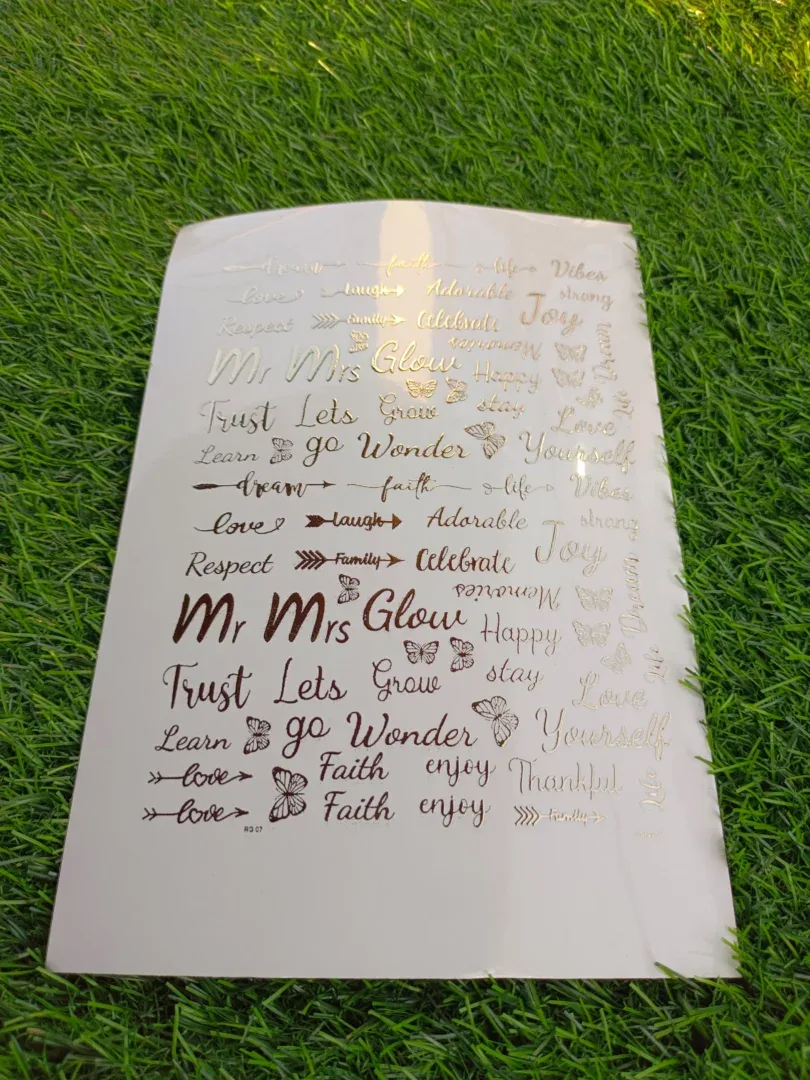 dream faith life Vibes
love laugh Adorable strong
Respect Family Celebrate Joy
Memories
Mr Mrs Glow Happy Dream
Trust Lets Grow stay Love Life
Learn go Wonder Yourself
dream faith life Vibes
love laugh Adorable strong
Respect Family Celebrate Joy
Memories
Mr Mrs Glow Happy Dream
Trust Lets Grow stay Love Life
Learn go Wonder Yourself
love Faith enjoy Thankful Life
love Faith enjoy Family
RG 07